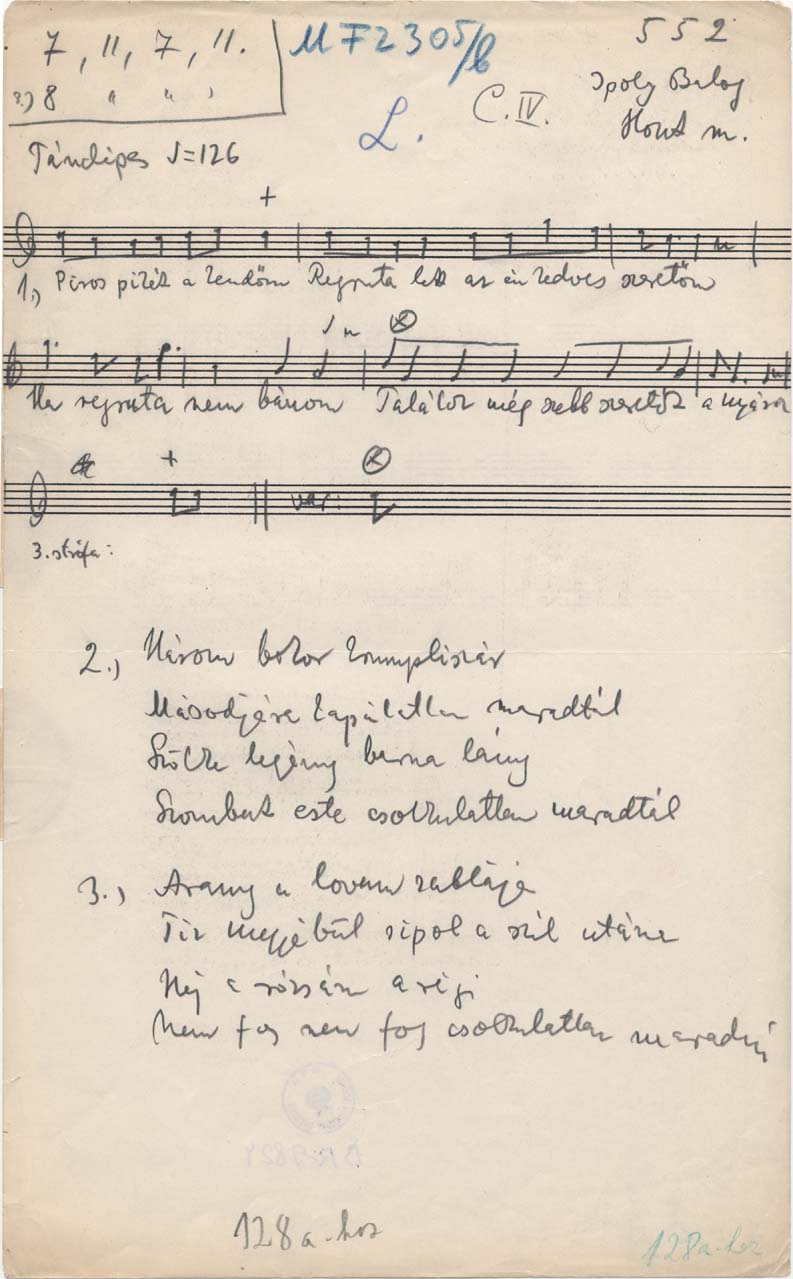 7, 11, 7, 11.
3.) 8 " " "
MF2305/b
552
Ipoly Balog
Hont m.
C.IV.
L.
Tánclépés ♩=126
+
1.) Piros pitét a kendőm Regruta lett az én kedves szeretőm
Ha regruta nem bánom Találok még szebb szeretőt a nyáron
+
var:
3. strófa:
2.) Három bokor krumpliszár
Másodjára kapálatlan maradtál
Szőke legény barna lány
Szombat este csókolatlan maradtál
3.) Arany a lovam zablája
Tíz sípol a szél utána
Héj a rózsám a régi
Nem fog nem fog csókolatlan maradni
128a-hoz
128a-hoz